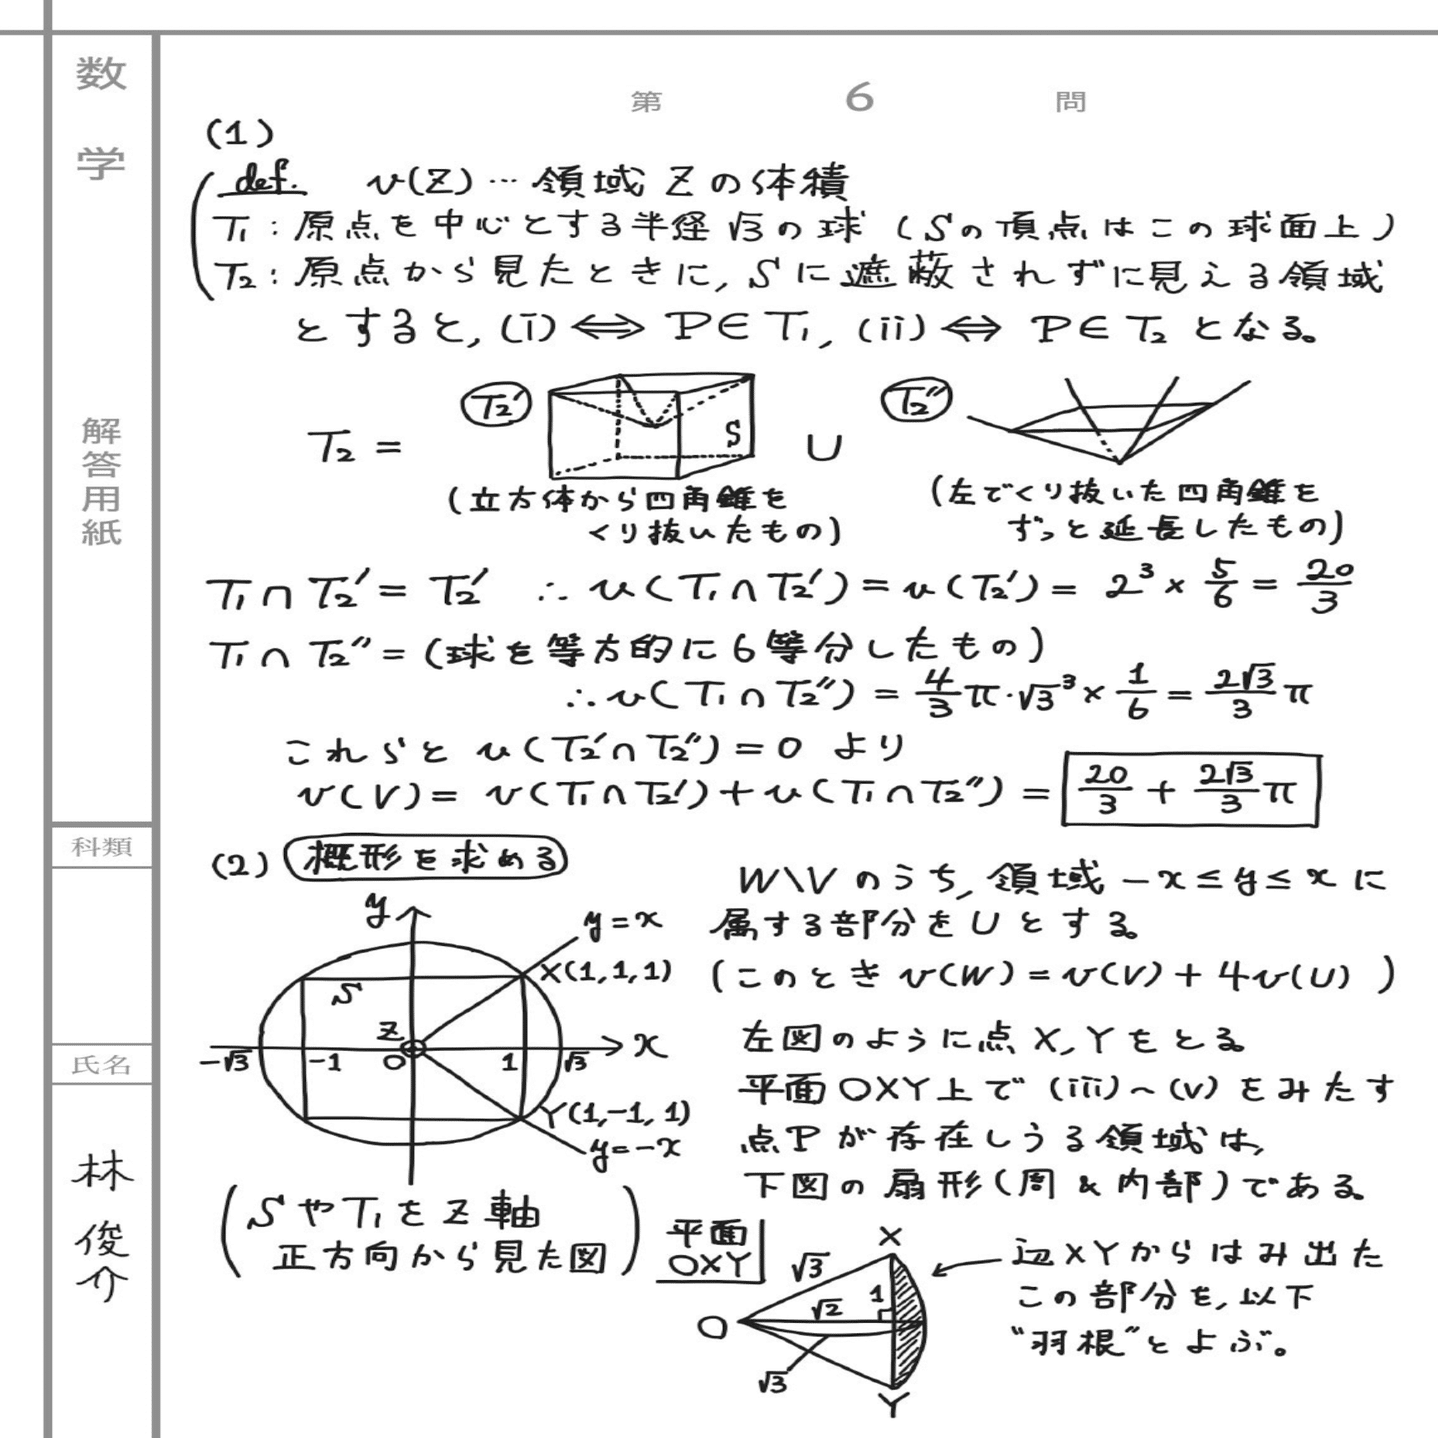 数学
解答用紙
科類
氏名
林俊介
第 6 問
(1)
def. v(Z)…領域Zの体積
T₁:原点を中心とする半径√3の球(Sの頂点はこの球面上)
T₂:原点から見たときに,Sに遮蔽されずに見える領域
とすると,(i)⇔P∈T₁,(ii)⇔P∈T₂となる。
T₂ = T₂′ S ∪ T₂″
(立方体から四角錐をくり抜いたもの)
(左でくり抜いた四角錐をずっと延長したもの)
T₁∩T₂′=T₂′ ∴v(T₁∩T₂′)=v(T₂′)=2³×5/6=20/3
T₁∩T₂″=(球を等方的に6等分したもの)
∴v(T₁∩T₂″)=4/3π·√3³×1/6=2√3/3π
これらとv(T₂′∩T₂″)=0より
v(V)=v(T₁∩T₂′)+v(T₁∩T₂″)=20/3+2√3/3π
(2) 概形を求める
y
y=x
X(1,1,1)
S
Z
x
-√3 -1 O 1 √3
Y(1,-1,1)
y=-x
(SやT₁をZ軸正方向から見た図)
W\Vのうち,領域-x≤y≤xに
属する部分をUとする。
(このときv(W)=v(V)+4v(U))
左図のように点X,Yをとる。
平面OXY上で(iii)~(v)をみたす
点Pが存在しうる領域は,
下図の扇形(周&内部)である。
平面OXY
X
√3
1
√2
O
√3
Y
辺XYからはみ出た
この部分を,以下
"羽根"とよぶ。